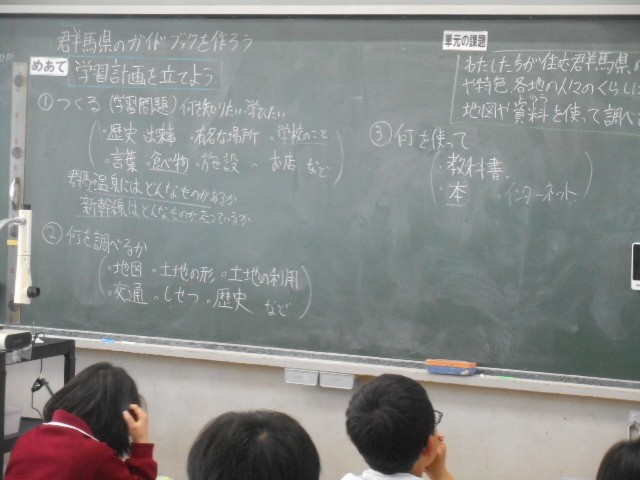 群馬県のガイドブックを作ろう
めあて 学習計画を立てよう
①つくる(学習問題)何を知りたい、学びたい
・歴史 出来事 ・有名な場所 ・学校のこと
・言葉 ・食べ物 ・施設 ・お店 など
群馬温泉にはどんなものがあるか
新幹線はどんなものが走っているか
②何を調べるか
・地図 ・土地の形 ・土地の利用
・交通 ・しせつ ・歴史 など
③何を使って
・教科書
・本 ・インターネット
単元の課題
わたしたちが住む群馬県の
や特色、各地の人々のくらしに
地図や資料を使って調べ